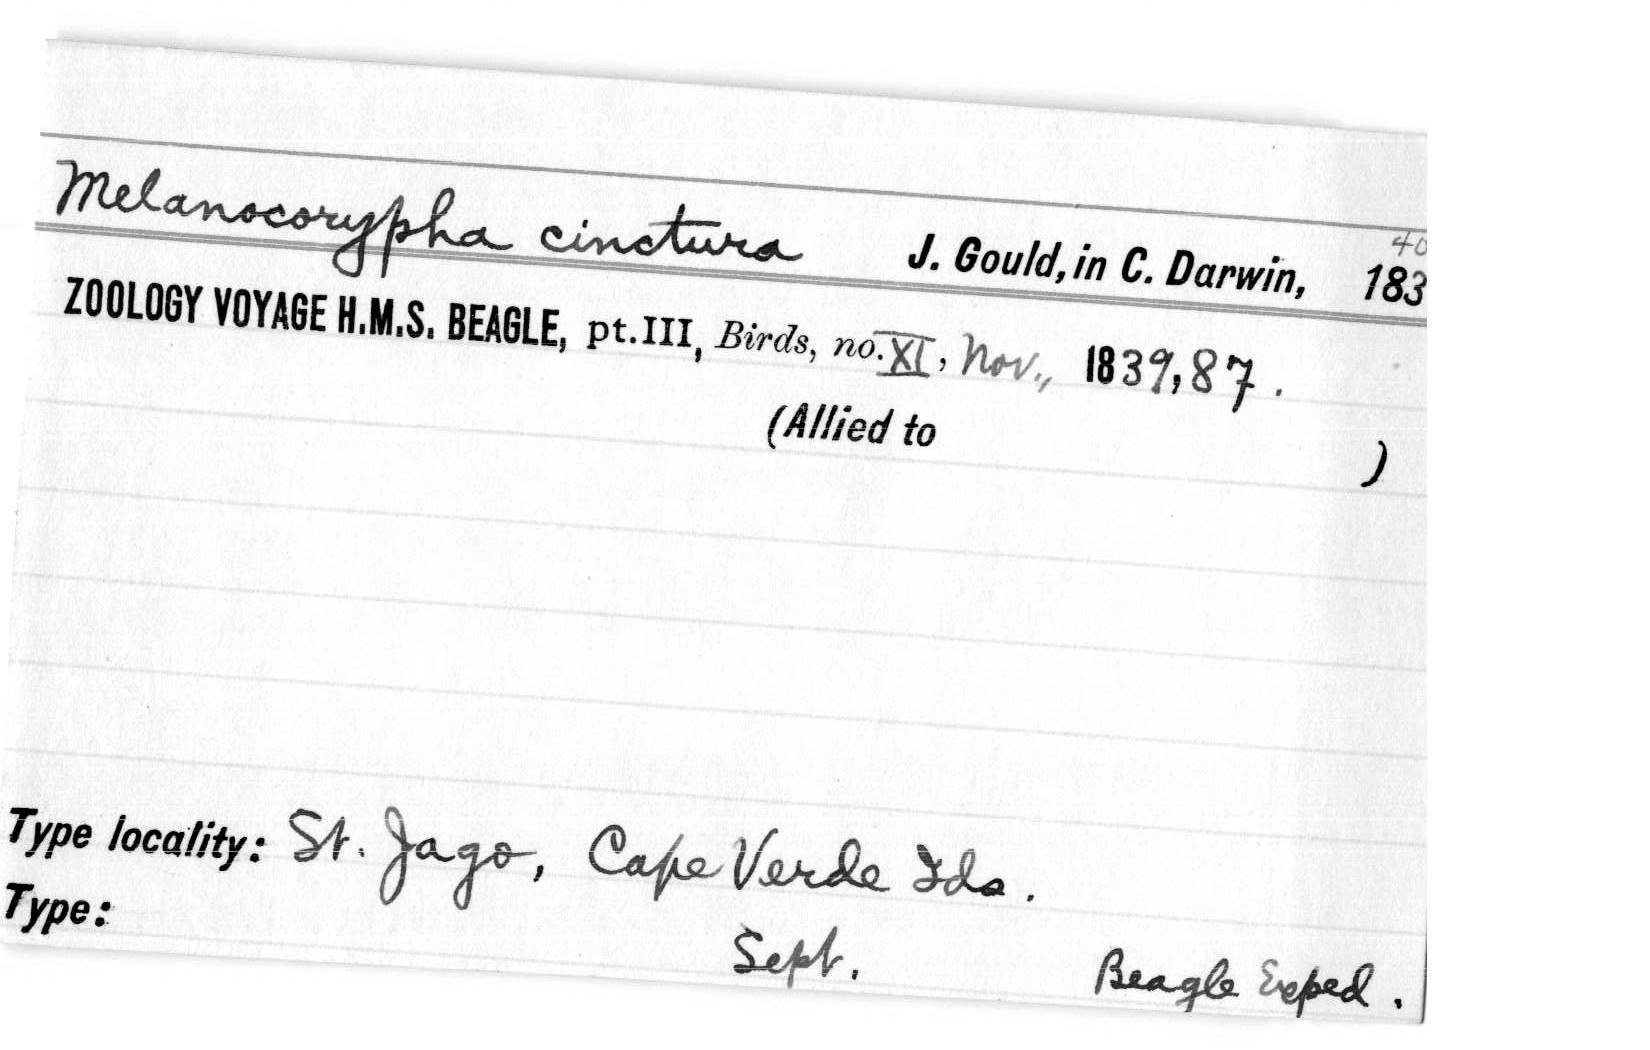 Melanocorypha cinctura J. Gould, in C. Darwin, 183
40
ZOOLOGY VOYAGE H.M.S. BEAGLE, pt.III, Birds, no. XI, Nov., 1839, 87.
(Allied to )
Type locality: St. Jago, Cape Verde Ids.
Type:
Sept. Beagle Exped.